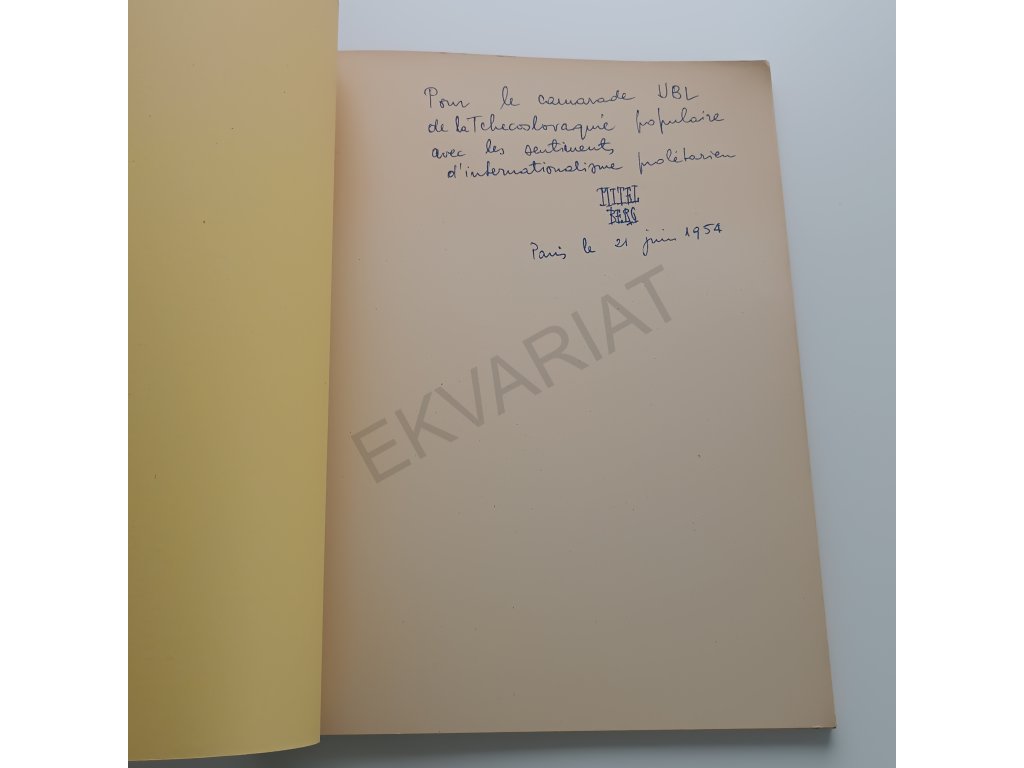 Pour le camarade UBL
de la Tchecoslovaquie populaire
avec les sentiments
d'internationalisme prolétarien
MITEL
BERG
Paris le 21 juin 1954
EKVARIAT